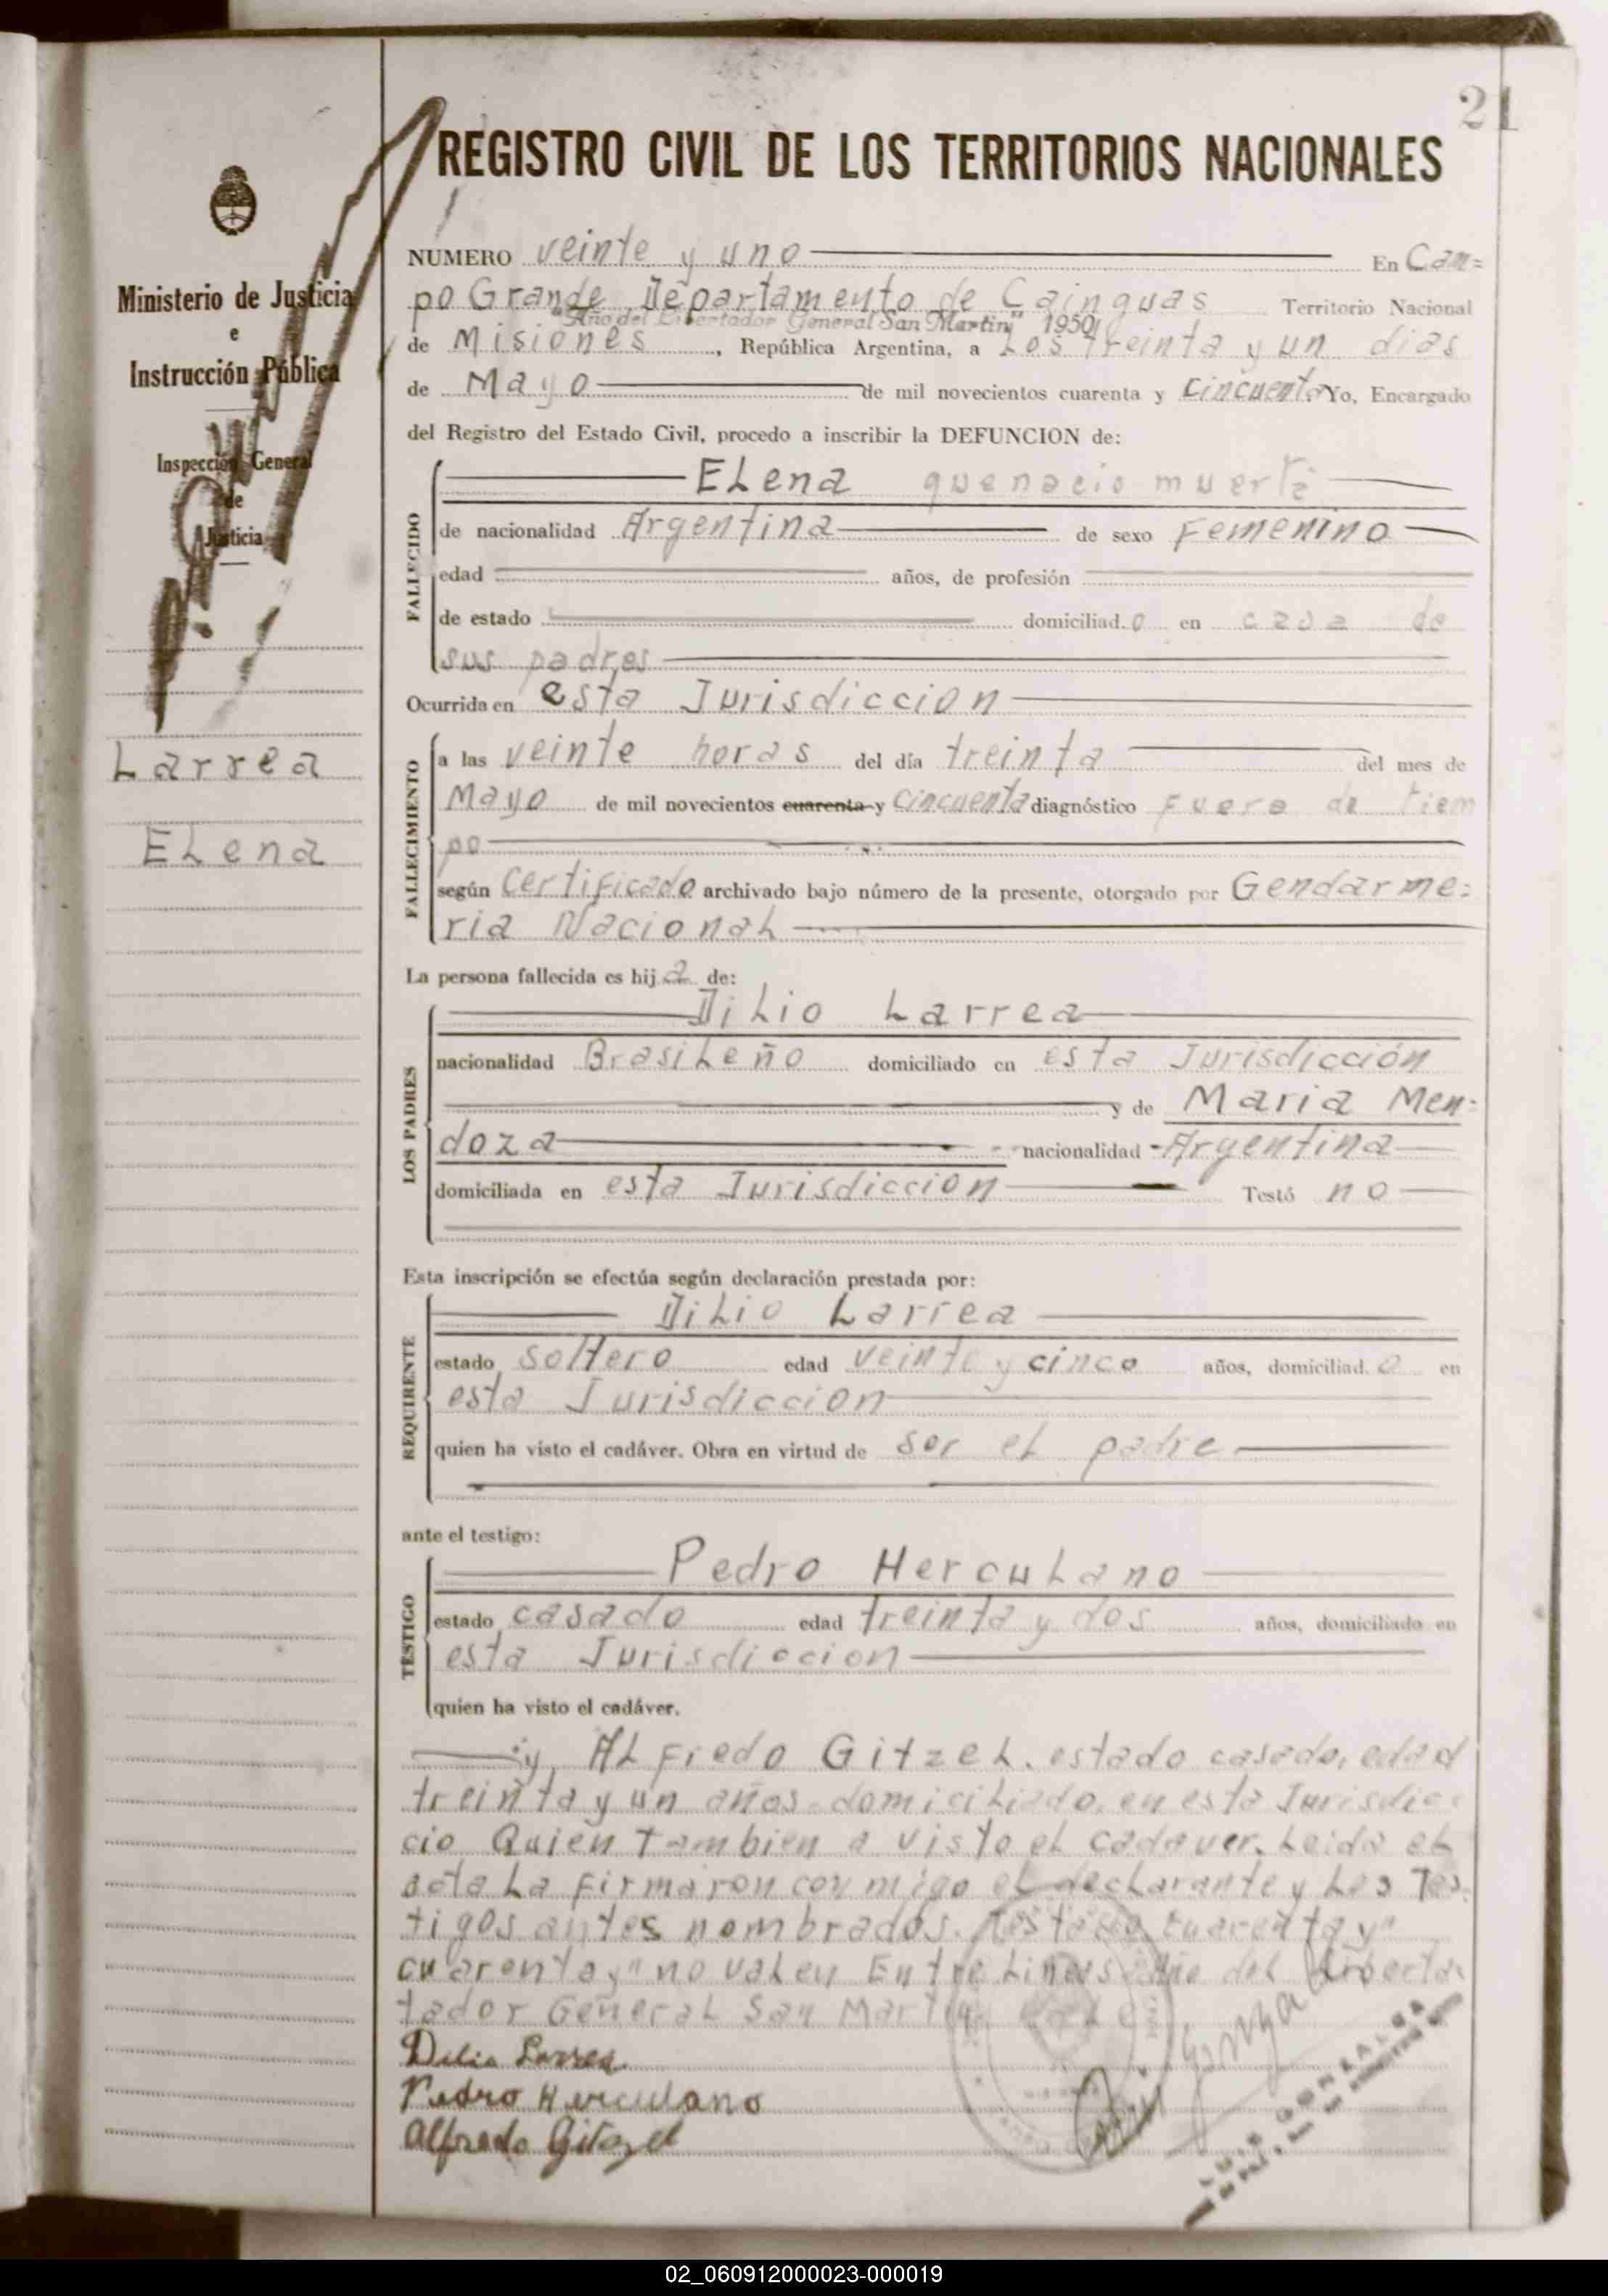 21
REGISTRO CIVIL DE LOS TERRITORIOS NACIONALES
Ministerio de Justicia
e
Instrucción Pública
Inspección General
de
Justicia
Larrea
ELena
NUMERO veinte y uno En Cam=
po Grande Departamento de Cainguas Territorio Nacional
"Año del Libertador General San Martin" 1950
de Misiones, República Argentina, a Los treinta y un dias
de Mayo de mil novecientos cuarenta y cincuenta Yo, Encargado
del Registro del Estado Civil, procedo a inscribir la DEFUNCION de:
FALLECIDO
ELena que nacio muerta
de nacionalidad Argentina de sexo Femenino
edad años, de profesión
de estado domiciliad.o en casa de
sus padres
Ocurrida en esta Jurisdiccion
FALLECIMIENTO
a las veinte horas del día treinta del mes de
Mayo de mil novecientos cuarenta y cincuenta diagnóstico Fuera de tiem
po
según certificado archivado bajo número de la presente, otorgado por Gendarme=
ria NacionaL
La persona fallecida es hij a de:
LOS PADRES
DiLio Larrea
nacionalidad BrasiLeño domiciliado en esta Jurisdicción
y de Maria Men=
doza nacionalidad Argentina
domiciliada en esta Jurisdiccion Testó no
Esta inscripción se efectúa según declaración prestada por:
REQUIRENTE
DiLio Larrea
estado soltero edad veinte y cinco años, domiciliad.o en
esta Jurisdiccion
quien ha visto el cadáver. Obra en virtud de ser eL padre
ante el testigo:
TESTIGO
Pedro HercuLano
estado casado edad treinta y dos años, domiciliado en
esta Jurisdiccion
quien ha visto el cadáver.
y, ALFredo GitzeL. estado casado, edad
treinta y un años domiciLiado. en esta Jurisdic=
cio Quien tambien a visto eL cadaver. Leida eL
acta La Firmaron con migo eL decLarante y Los Tes=
tigos antes nombrados. Testado cuarenta y"
cuarenta y" no vaLen Entre Lineas Año deL Liberta=
tador GeneraL San Martin VaLe
Delio Larrea
Pedro Herculano
Alfredo Gitzel
LUIS GONZALGA
02_060912000023-000019